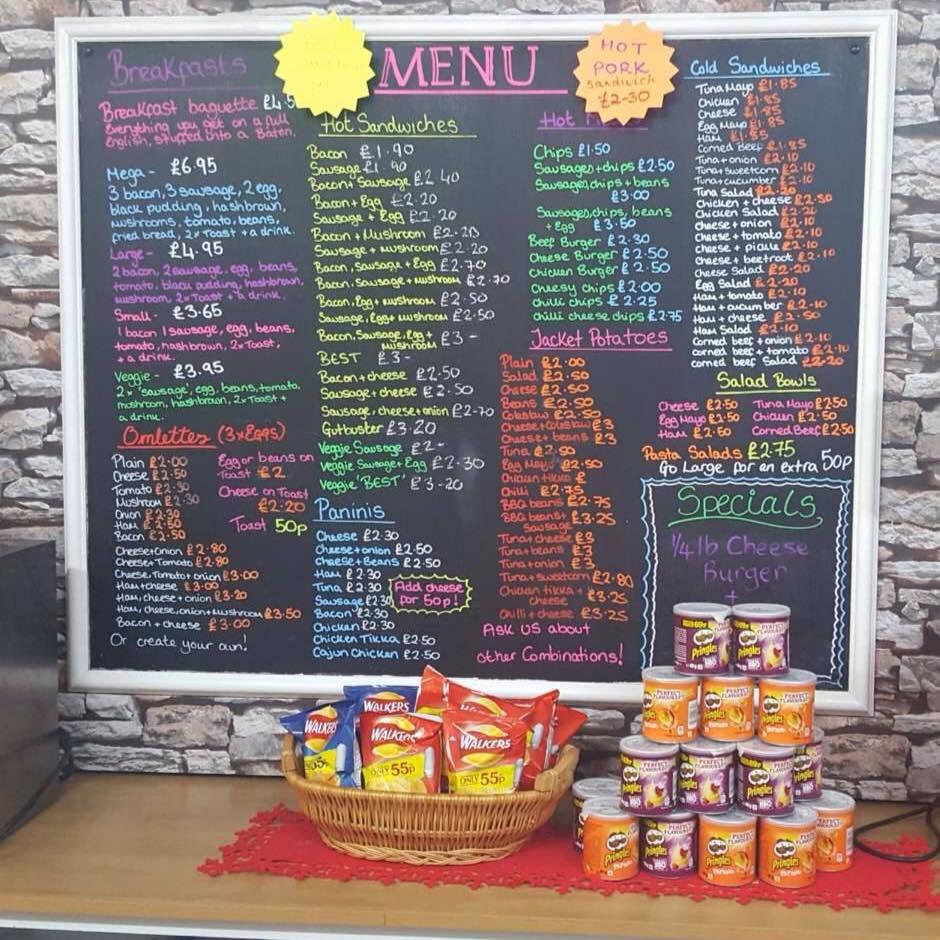 MENU
HOT
PORK
Sandwich
£2-30
Breakfasts
Breakfast baguette
Everything you get on a full
English, stuffed into a Baton.
Mega - £6.95
3 bacon, 3 sausage, 2 egg,
black pudding, hashbrown,
mushrooms, tomato, beans,
fried bread, 2x Toast + a drink.
Large - £4.95
2 bacon, 2 sausage, egg, beans,
tomato, black pudding, hashbrown,
mushroom, 2x Toast + a drink.
Small - £3.65
1 bacon 1 sausage, egg, beans,
tomato, hashbrown, 2x Toast,
+ a drink.
Veggie - £3.95
2x 'sausage', egg, beans, tomato,
mushroom, hashbrown, 2x Toast +
a drink.
Omlettes (3xEggs)
Plain £2.00
Cheese £2.50
Tomato £2.30
Mushroom £2.30
Onion £2.30
Ham £2.50
Bacon £2.50
Cheese+Onion £2.80
Cheese+Tomato £2.80
Cheese, Tomato+onion £3.00
Ham+cheese £3.00
Ham, cheese+onion £3.20
Ham, cheese, onion+mushroom £3.50
Bacon + cheese £3.00
Or create your own!
Egg or beans on
Toast £2
Cheese on Toast
£2.20
Toast 50p
Hot Sandwiches
Bacon £1.90
Sausage £1.90
Bacon+Sausage £2.40
Bacon + Egg £2.20
Sausage + Egg £2.20
Bacon + Mushroom £2.20
Sausage + mushroom £2.20
Bacon, Sausage + Egg £2.70
Bacon, Sausage + mushroom £2.70
Bacon, Egg + mushroom £2.50
Sausage, Egg + mushroom £2.50
Bacon, Sausage, Egg +
mushroom £3 -
BEST £3 -
Bacon + cheese £2.50
Sausage + cheese £2.50
Sausage, cheese+onion £2-70
Gutbuster £3.20
Veggie Sausage £2 -
Veggie Sausage+ Egg £2-30
Veggie 'BEST' £3-20
Paninis
Cheese £2.30
Cheese+onion £2.50
Cheese+Beans £2.50
Ham £2.30
Tuna £2.30
Sausage £2.30
Bacon £2.30
Chicken £2.30
Chicken Tikka £2.50
Cajun Chicken £2.50
Add cheese
for 50p!
Hot
Chips £1.50
Sausages+chips £2.50
Sausages, chips + beans
£3.00
Sausages, chips, beans
+ Egg £3.50
Beef Burger £2.30
Cheese Burger £2.50
Chicken Burger £2.50
Cheesy chips £2.00
chilli chips £2.25
chilli cheese chips £2.75
Jacket Potatoes
Plain £2.00
Salad £2.50
Cheese £2.50
Beans £2.50
Coleslaw £2.50
Cheese+Coleslaw £3
Cheese+beans £3
Tuna £2.50
Egg Mayo £2.50
Chicken tikka £
Chilli £2.75
BBQ beans £2.75
BBQ beans+ £3.25
Sausage
Tuna+cheese £3
Tuna+beans £3
Tuna+onion £3
Tuna+sweetcorn £2.80
Chicken tikka +
cheese £3.25
Chilli + cheese £3.25
Ask us about
other Combinations!
Cold Sandwiches
Tuna Mayo £1.85
Chicken £1.85
Cheese £1.85
Egg Mayo £1.85
Ham £1.85
Corned Beef £1.85
Tuna+onion £2.10
Tuna+sweetcorn £2.10
Tuna+cucumber £2.10
Tuna Salad £2.20
Chicken + cheese £2.50
Chicken Salad £2.20
Cheese + onion £2.10
Cheese + tomato £2.10
Cheese + pickle £2.10
Cheese + beetroot £2.10
Cheese Salad £2.20
Egg Salad £2.20
Ham + tomato £2.10
Ham + cucumber £2.10
Ham + cheese £2.50
Ham Salad £2.10
Corned beef + onion £2.10
corned beef + tomato £2.10
corned beef Salad £2.20
Salad Bowls
Cheese £2.50 Tuna Mayo £2.50
Egg Mayo £2.50 Chicken £2.50
Ham £2.50 Corned Beef £2.50
Pasta Salads £2.75
Go Large for an extra 50p
Specials
1/4 lb Cheese
Burger
+
WALKERS
WALKERS
WALKERS
WALKERS
ONLY 55p
ONLY 55p
Pringles
Pringles
Pringles
Pringles
Pringles
Pringles
Pringles
Pringles
Pringles
Pringles
Pringles
Pringles